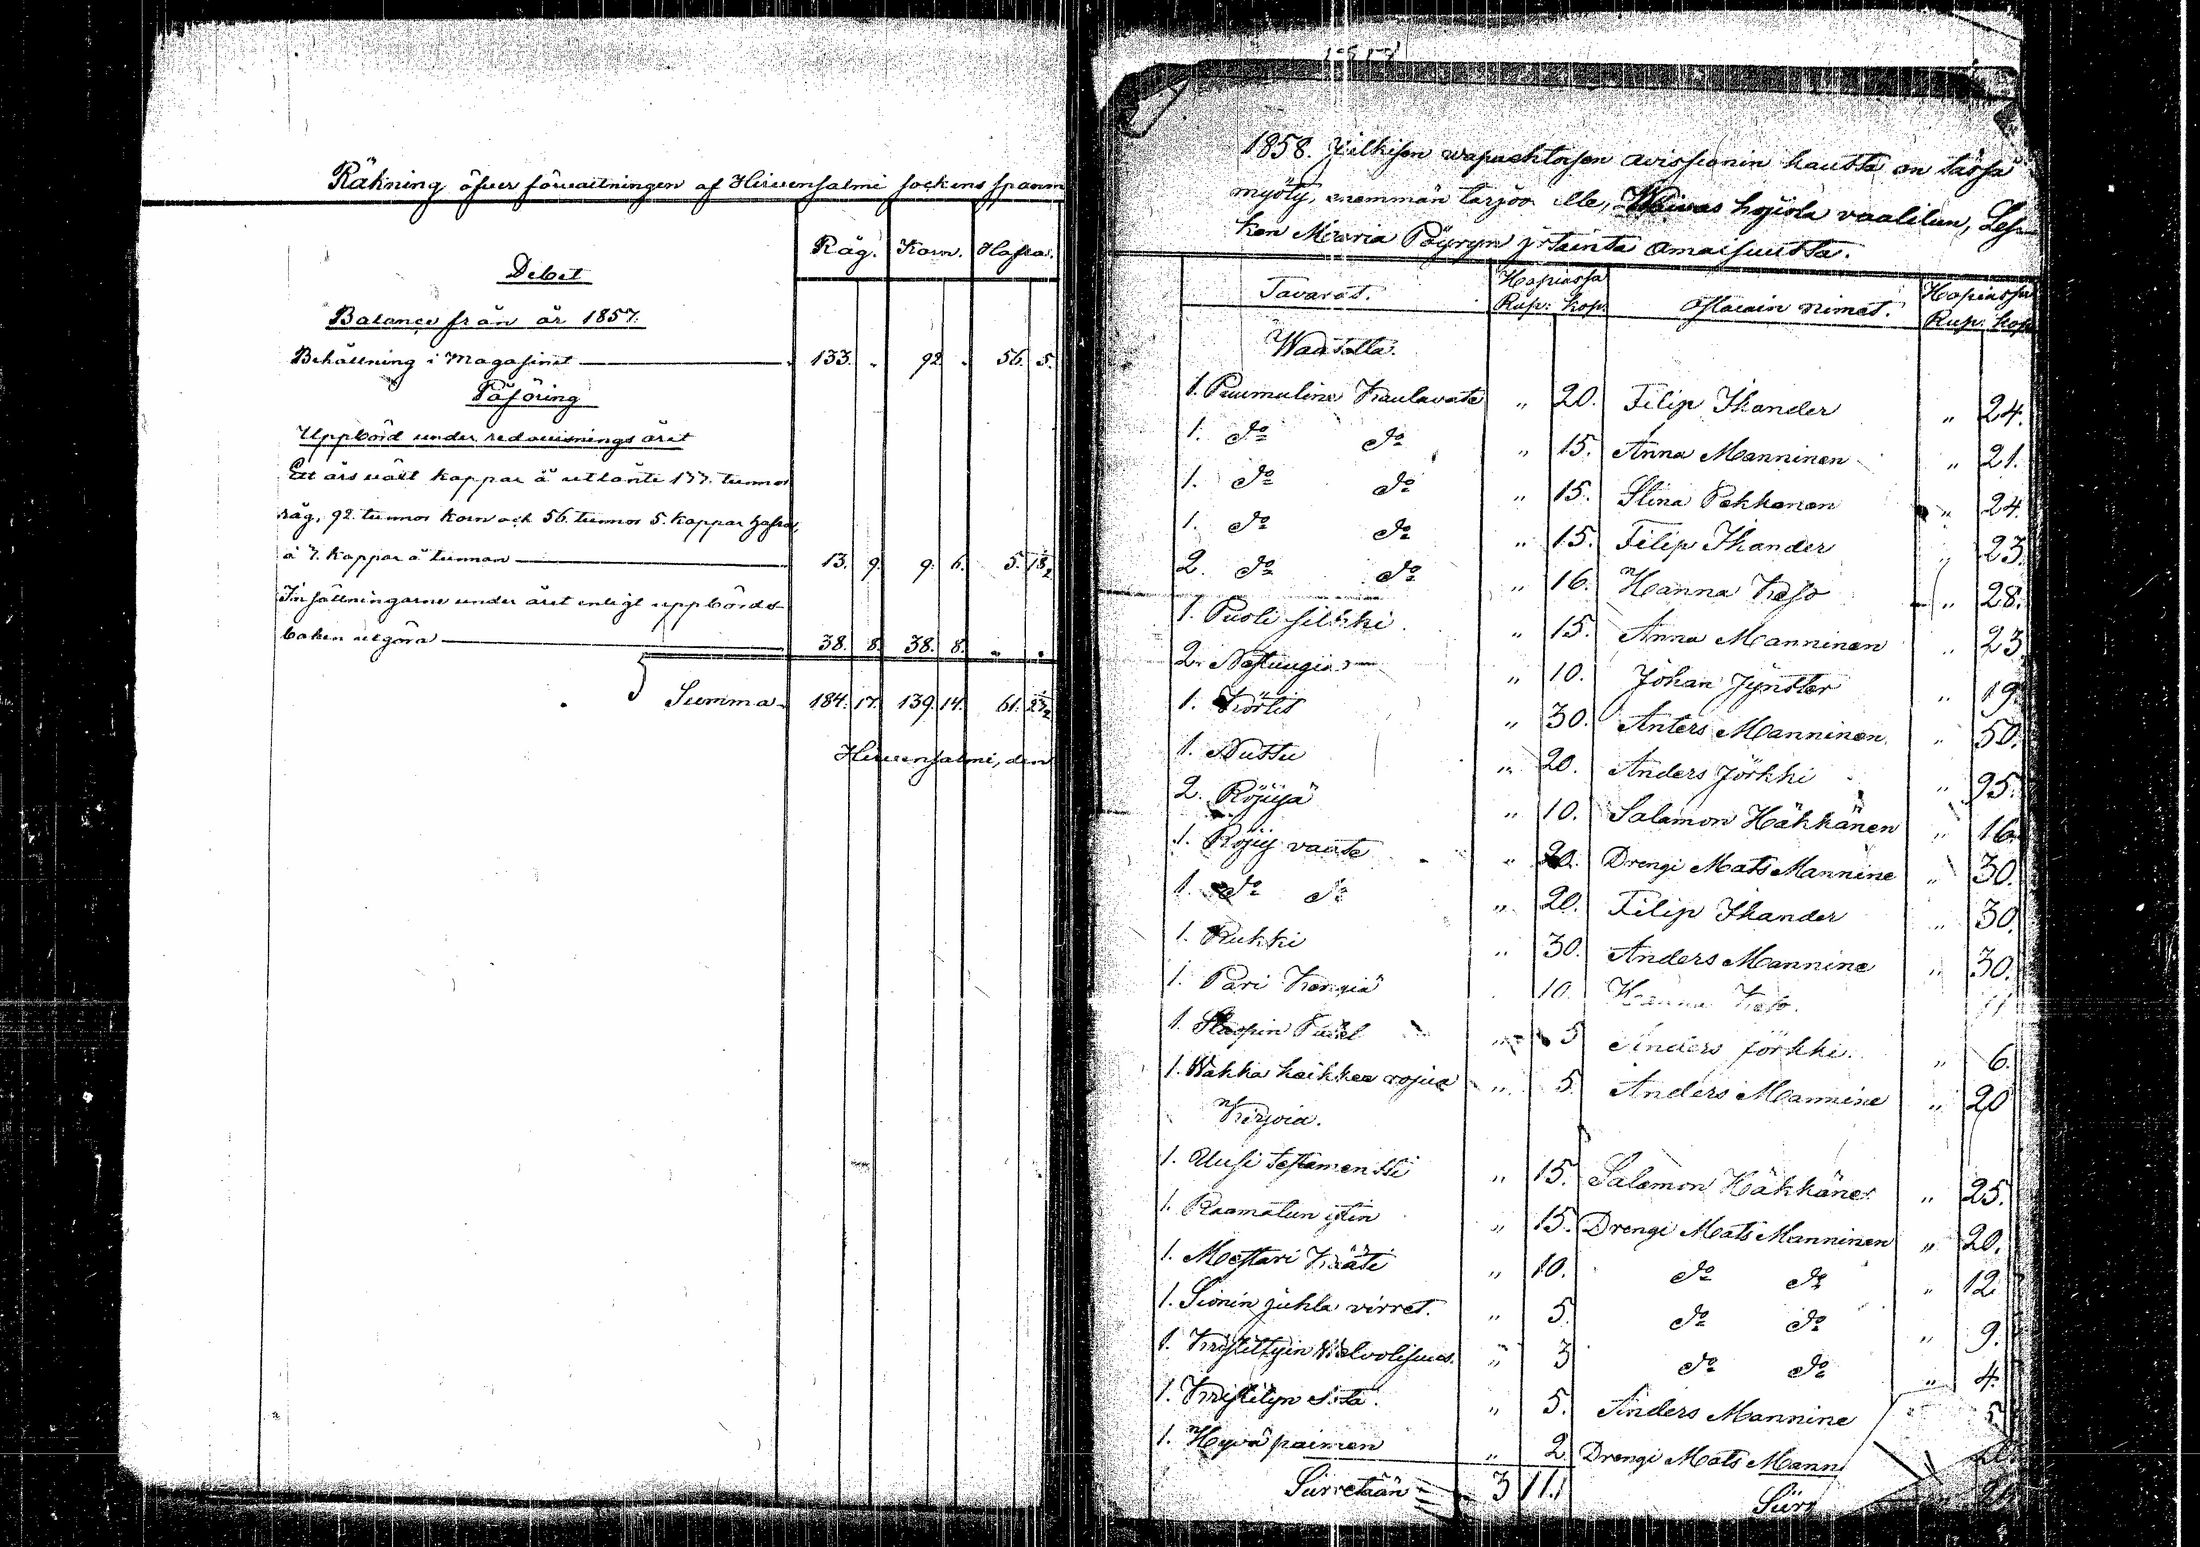 Räkning öfver förvaltningen af Hirvensalmi sockens spanm
Råg. Korn. Hafra.
Debet
Balance från år 1857.
Behållning i Magasinet 133. " 92 " 56. 5.
Påföring
Uppbörd under redovisnings året
Ett års växt kappar å utlånte 177. tunnor
råg, 92. tunnor korn och 56. tunnor 5. kappar hafra,
à 7. kappar à tunnan 13. 9. 9. 6. 5.
Insättningarne under året enligt uppbörds
boken utgöra 38. 8. 38. 8. " "
Summa 184. 17. 139. 14. 61.
Hirvensalmi, den
1858. Julkisen wapaehtoisen avissionin kautta on tässä
myöty, enemmän tarjoo elle, Waivas hojiola vaalilun, Les-
ken Maria Pöyryn jrtainta Omaisuutta.
Tavarat. Hopiassa Rup: kop. Ostaian nimet. Hopiassa Rup: kop.
Waatetta.
1. Puumuline Kaulavate " 20. Filip Ikander " 24.
1. do do " 15. Anna Manninen " 21.
1. do do " 15. Stina Pekkanen " 24.
1. do do " 15. Filip Ikander " 23.
2. do do " 16. Hanna Keso " 28.
1. Puoli silkki " 15. Anna Manninen " 23.
2. Nästuugia " 10. Johan Jyntter " 19.
1. Körtit " 30. Anters Manninen " 50.
1. Nuttu " 20. Anders Jörkki " 95.
2. Röijyä " 10. Salamon Häkkänen " 16.
1. Röijy vaate " 20. Drengi Mats Mannine " 30.
1. do do " 20. Filip Ikander " 30.
1. Rukki " 30. Anders Mannine " 30.
1. Pari Kengiä 10. Hanna Keso. 11
1. 5 Anders Jörkki. " 6.
1. Wakka kaikkea rojua " 5. Anders Mannine " 20
Kirjoia.
1. Uusi testamentti " 15. Salamon Häkkänen " 25.
1. Raamatun ytin " 15. Drengi Mats Manninen " 20.
1. Mestari Kääte " 10. do do " 12
1. Sionin juhla virret. " 5. do do " 9.
1. Kristittyin " 3 do do " 4.
1. Kristityn Sota. " 5. Anders Mannine 5
1. Hyvä paimen " 2 Drengi Mats Mann
Siirretään 3 11. Siirr